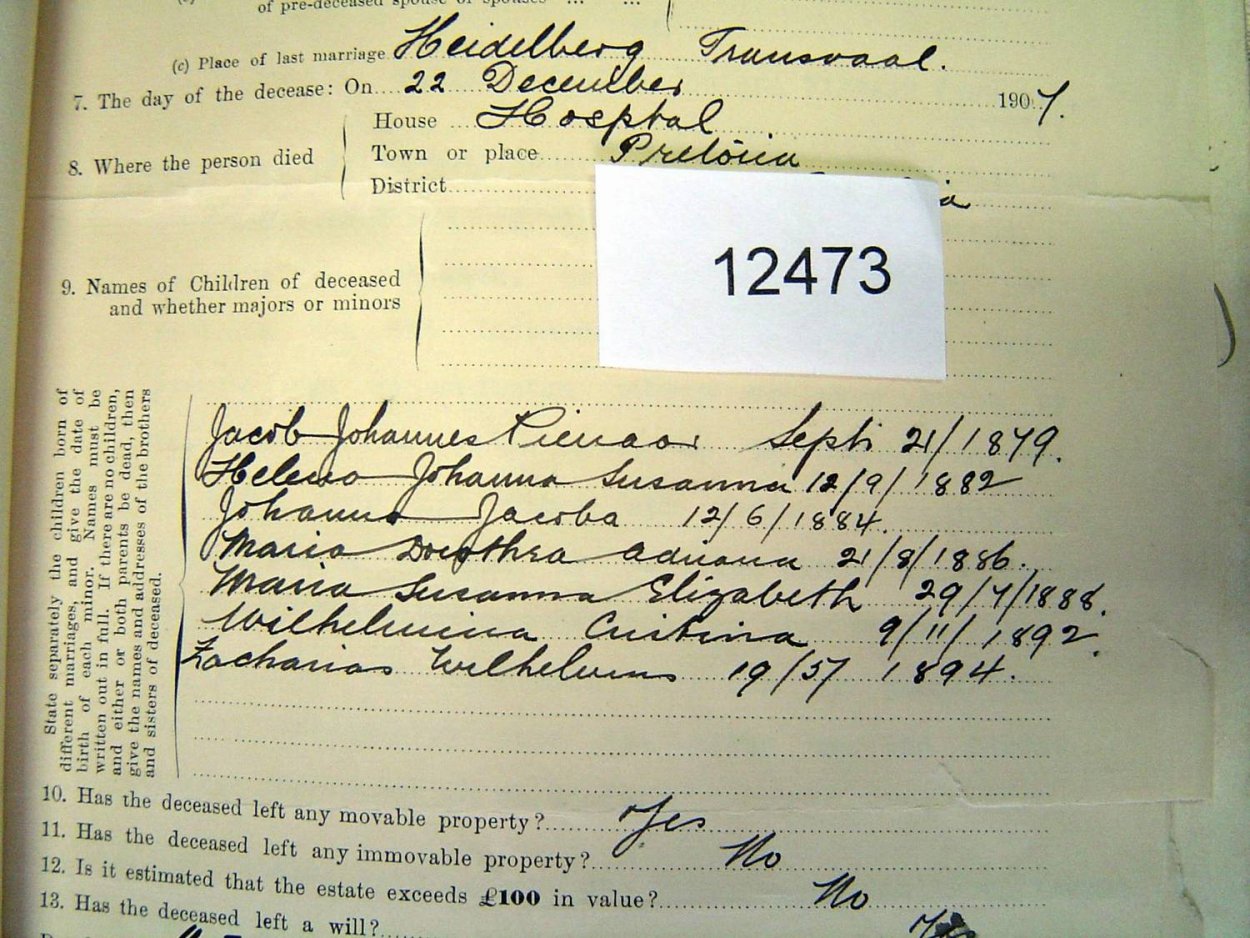 of pre-deceased spouse or spouses ... ...
(c) Place of last marriage Heidelberg Transvaal.
7. The day of the decease: On 22 December 1907.
House Hospital
8. Where the person died
Town or place Pretoria
District
12473
9. Names of Children of deceased
and whether majors or minors
State separately the children born of
different marriages, and give the date of
birth of each minor. Names must be
written out in full. If there are no children,
and either or both parents be dead, then
give the names and addresses of the brothers
and sisters of deceased.
Jacob Johannes Pienaar Sept 21/1879.
Helena Johanna Susanna 12/9/1882
Johanna Jacoba 12/6/1884.
Maria Dorothea Adriana 21/8/1886.
Maria Susanna Elizabeth 29/7/1888.
Wilhelmina Cristina 9/11/1892.
Zacharias Wilhelmus 19/5/ 1894.
10. Has the deceased left any movable property? Yes
11. Has the deceased left any immovable property? No
12. Is it estimated that the estate exceeds £100 in value? No
13. Has the deceased left a will?